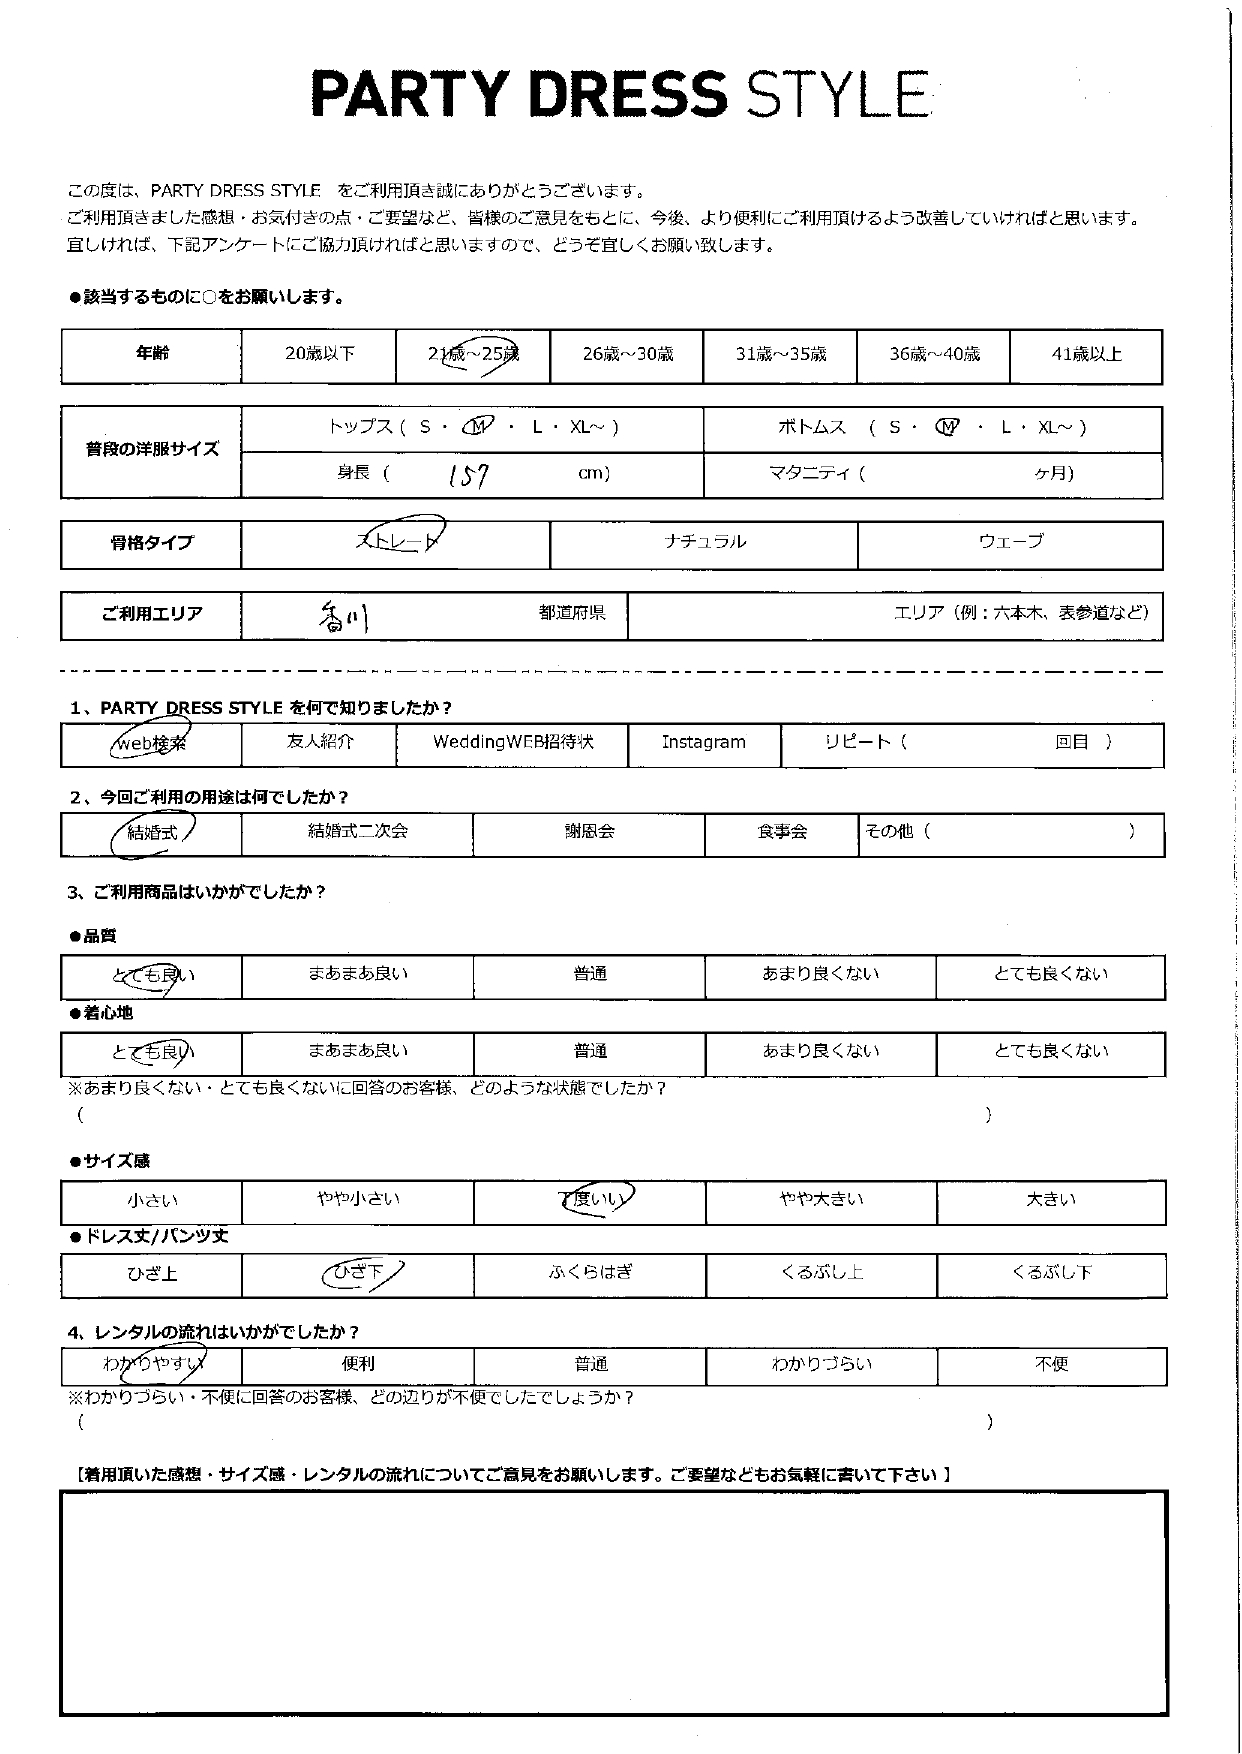 PARTY DRESS STYLE
この度は、PARTY DRESS STYLE をご利用頂き誠にありがとうございます。
ご利用頂きました感想・お気付きの点・ご要望など、皆様のご意見をもとに、今後、より便利にご利用頂けるよう改善していければと思います。
宜しければ、下記アンケートにご協力頂ければと思いますので、どうぞ宜しくお願い致します。
●該当するものに○をお願いします。
年齢 20歳以下 21歳～25歳 26歳～30歳 31歳～35歳 36歳～40歳 41歳以上
普段の洋服サイズ
トップス ( S ・ M ・ L ・ XL～ ) ボトムス ( S ・ M ・ L ・ XL～ )
身長 ( 157 cm) マタニティ ( ヶ月)
骨格タイプ ストレート ナチュラル ウェーブ
ご利用エリア 香川 都道府県 エリア（例：六本木、表参道など）
1、PARTY DRESS STYLE を何で知りましたか？
web検索 友人紹介 WeddingWEB招待状 Instagram リピート（ 回目 ）
2、今回ご利用の用途は何でしたか？
結婚式 結婚式二次会 謝恩会 食事会 その他（ ）
3、ご利用商品はいかがでしたか？
●品質
とても良い まあまあ良い 普通 あまり良くない とても良くない
●着心地
とても良い まあまあ良い 普通 あまり良くない とても良くない
※あまり良くない・とても良くないに回答のお客様、どのような状態でしたか？
( )
●サイズ感
小さい やや小さい 丁度いい やや大きい 大きい
●ドレス丈/パンツ丈
ひざ上 ひざ下 ふくらはぎ くるぶし上 くるぶし下
4、レンタルの流れはいかがでしたか？
わかりやすい 便利 普通 わかりづらい 不便
※わかりづらい・不便に回答のお客様、どの辺りが不便でしたでしょうか？
( )
【着用頂いた感想・サイズ感・レンタルの流れについてご意見をお願いします。ご要望などもお気軽に書いて下さい 】